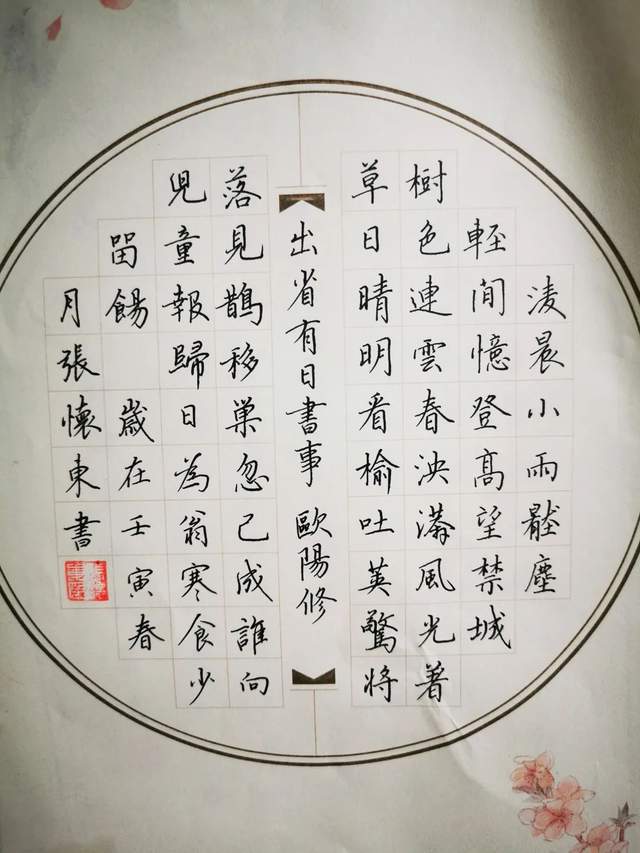 淩晨小雨壓塵
輕間憶登高望禁城
樹色連雲春泱漭風光著
草日晴明看榆吐莢驚將
出省有日書事 歐陽修
落見鵲移巢忽已成誰向
兒童報歸日為翁寒食少
留餳 歲在壬寅春
月張懷東書